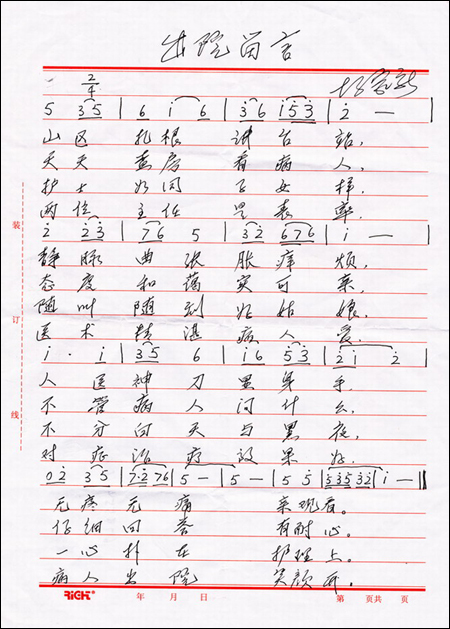 出院留言
2/4
5 3 5 | 6 i 6 | 3 6 i 5 3 | 2 —
山区 扎根 讲台 站,
天天 查房 看病 人,
护士 如同 女样,
两位 主任 是表 率,
2 2 3 | 7 6 5 | 3 2 6 7 6 | i — |
静脉 曲张 胀痒 烦,
态度 和蔼 实可 亲,
随叫 随到 好姑 娘,
医术 精湛 病人 爱.
i · i | 3 5 6 | i 6 5 3 | 2 i 2
人医 神刀 显身 手,
不管 病人 问什 么,
不分 白天 与黑 夜,
对症 治疗 效果 好.
0 2 3 5 | 7·2 7 6 | 5 — | 5 — | 5 5 | 3 3 5 3 2 | i — ||
无疼 无痛
仔细 回答 有耐心.
一心 扑在 护理上.
病人 出院 笑颜开.
年 月 日 第 页共 页
装
订
线